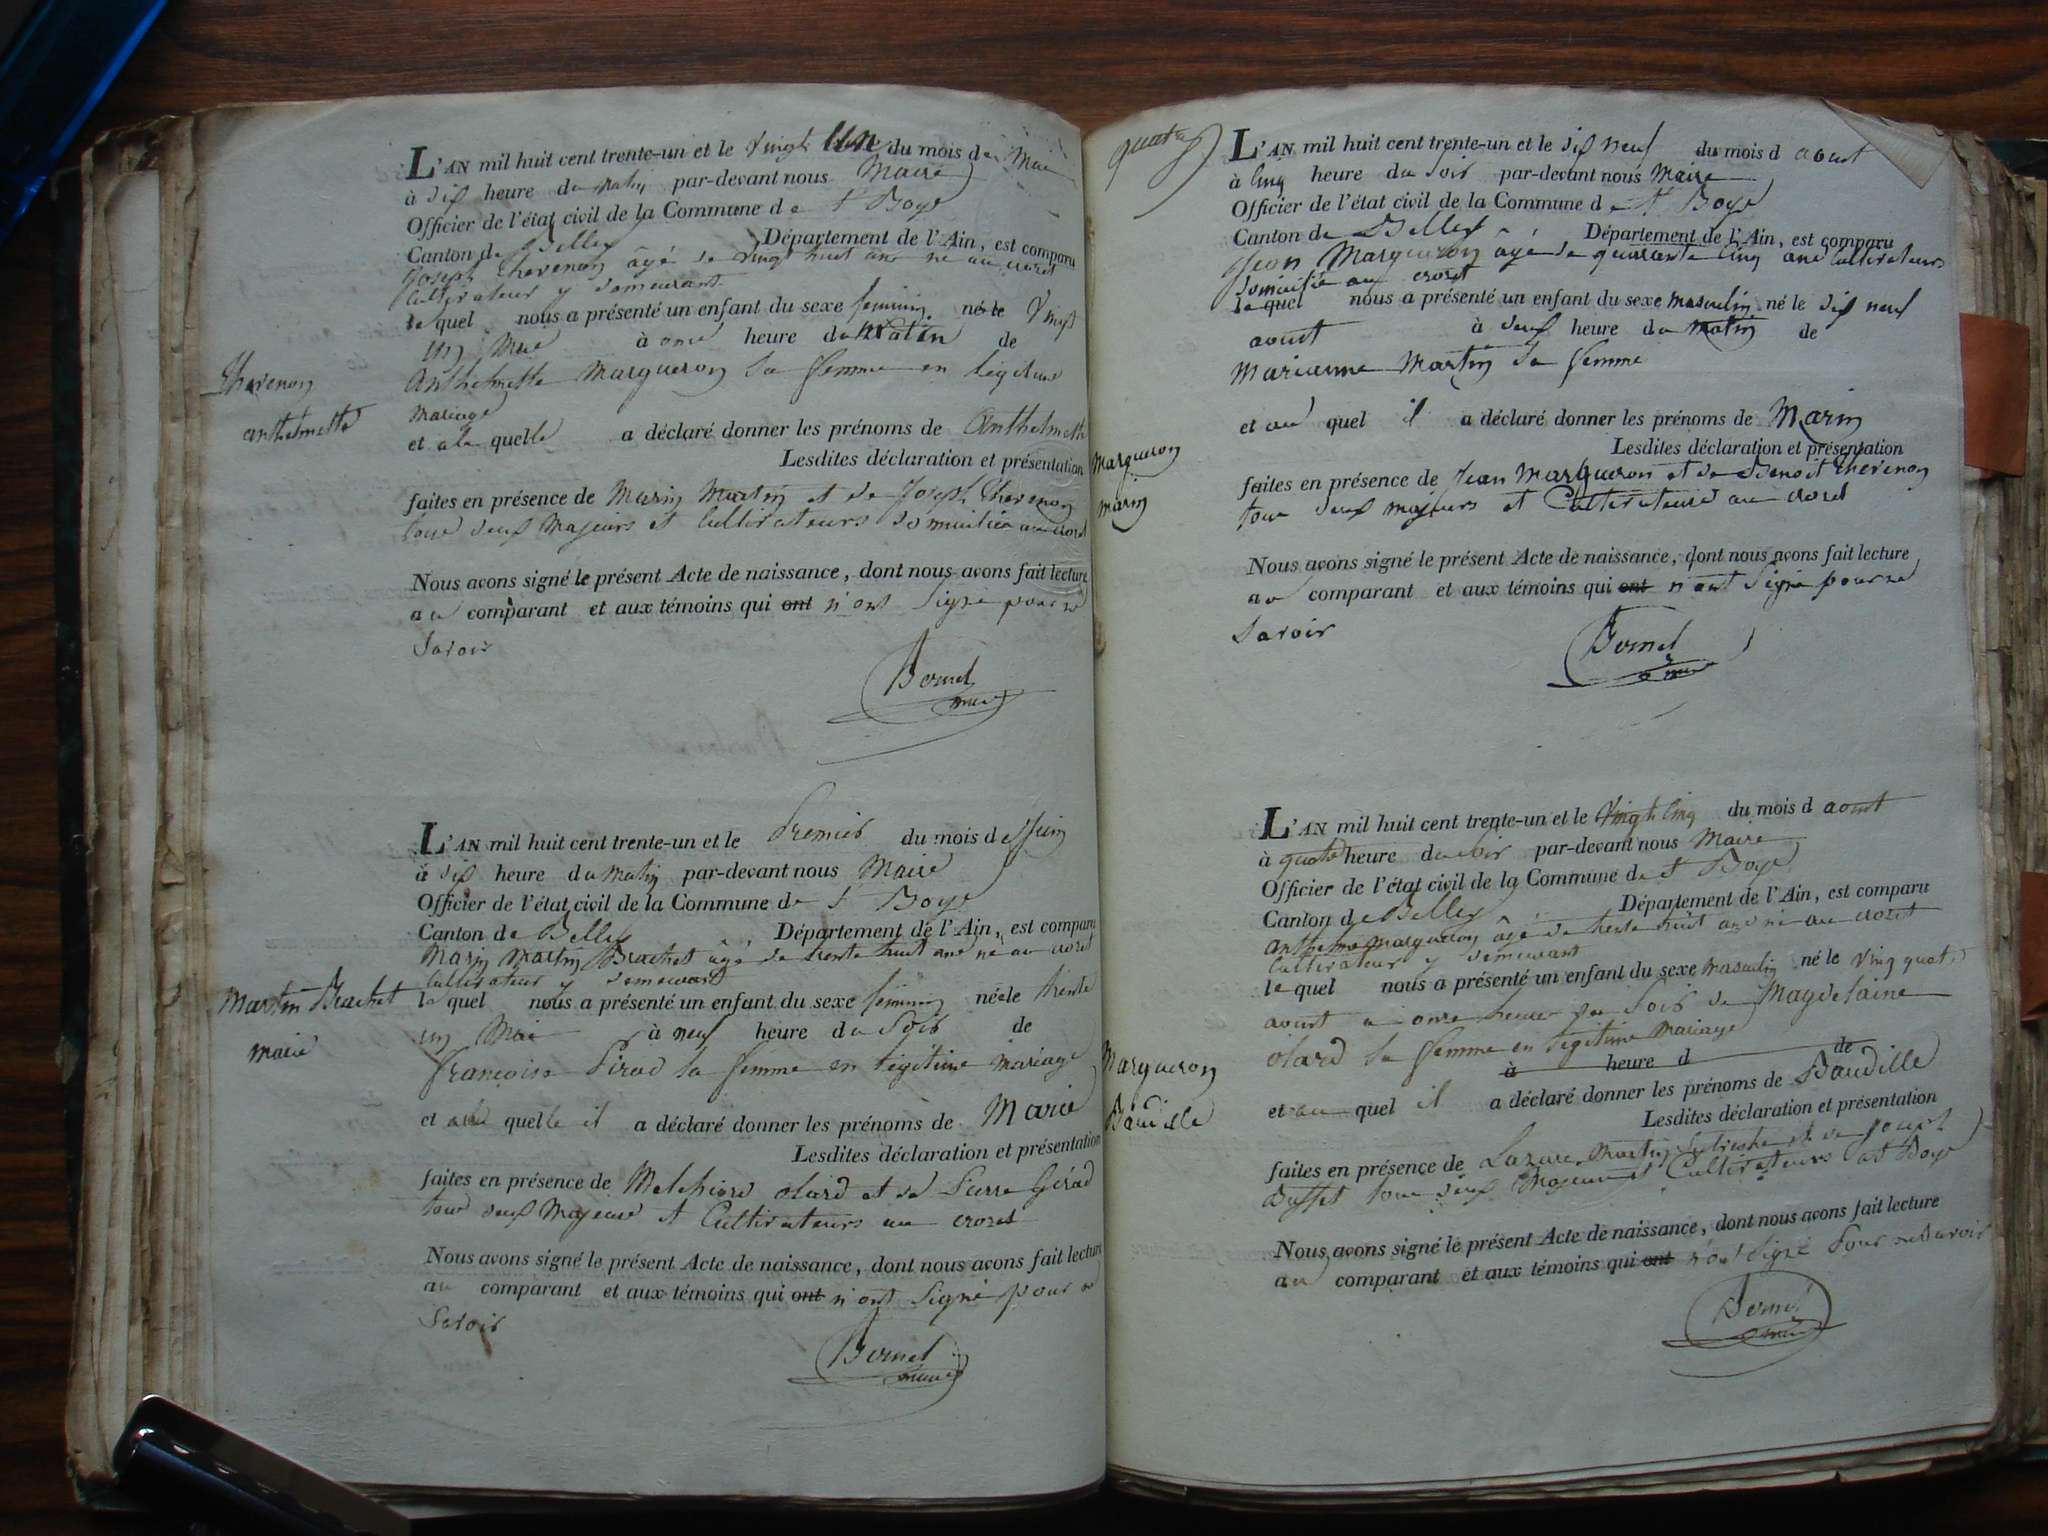 L'AN mil huit cent trente-un et le vingt Un du mois de Mai
à dix heure du matin par-devant nous Maire
Officier de l'état civil de la Commune de St Boys
Canton de Belley Département de l'Ain, est comparu
Joseph Thevenon âgé de vingt huit ans né au crozet
Cultivateur y demeurant
le quel nous a présenté un enfant du sexe feminin née le Vingt
un Mai à onze heure du Matin de
Anthelmette Margueron sa femme en legitime
Mariage
et a la quelle a déclaré donner les prénoms de Anthelmette
Lesdites déclaration et présentation
faites en présence de Marin Martin et de Joseph Thevenon
tous deux Majeurs et Cultivateurs domiciliés au crozet
Nous avons signé le présent Acte de naissance, dont nous avons fait lecture
au comparant et aux témoins qui ont n'ont Signé pour ne
Savoir
Bornet
maire
Thevenon
anthelmette
L'AN mil huit cent trente-un et le Premier du mois de Juin
à dix heure du matin par-devant nous Maire
Officier de l'état civil de la Commune de St Boys
Canton de Belley Département de l'Ain, est comparu
Marin Martin Brachet âgé de trente huit ans né au crozet
Cultivateur y demeurant
le quel nous a présenté un enfant du sexe feminin née le trente
un Mai à neuf heure du Soir de
françoise Pirad sa femme en legitime mariage
et a la quelle il a déclaré donner les prénoms de Marie
Lesdites déclaration et présentation
faites en présence de Melchiord olard et de Pierre Gérad
tous deux Majeurs et Cultivateurs au crozet
Nous avons signé le présent Acte de naissance, dont nous avons fait lecture
au comparant et aux témoins qui ont n'ont Signé pour ne
Savoir
Bornet
maire
Martin Brachet
marie
L'AN mil huit cent trente-un et le dix neuf du mois d aoust
à Cinq heure du Soir par-devant nous Maire
Officier de l'état civil de la Commune de St Boys
Canton de Belley Département de l'Ain, est comparu
Jean Margueron âgé de quarante Cinq ans Cultivateur
domicilié au crozet
le quel nous a présenté un enfant du sexe masculin né le dix neuf
aoust à deux heure du matin de
Marianne Martin sa femme
et au quel il a déclaré donner les prénoms de Marin
Lesdites déclaration et présentation
faites en présence de Jean Margueron et de Benoit Thevenon
tous deux majeurs et Cultivateurs au crozet
Nous avons signé le présent Acte de naissance, dont nous avons fait lecture
au comparant et aux témoins qui ont n'ont Signé pour ne
Savoir
Bornet
maire
Margueron
marin
L'AN mil huit cent trente-un et le Vingt Cinq du mois d aoust
à quatre heure du soir par-devant nous Maire
Officier de l'état civil de la Commune de St Boys
Canton de Belley Département de l'Ain, est comparu
anthelme margueron âgé de trente huit ans né au crozet
Cultivateur y demeurant
le quel nous a présenté un enfant du sexe masculin né le Vingt quatre
aoust a onze heure du Soir de Magdelaine
olard sa femme en legitime mariage
à heure d de
et au quel il a déclaré donner les prénoms de Baudille
Lesdites déclaration et présentation
faites en présence de Lazare Martin et de Joseph
Buffet tous deux Majeurs et Cultivateurs a St Boys
Nous avons signé le présent Acte de naissance, dont nous avons fait lecture
au comparant et aux témoins qui ont n'ont Signé Pour ne Savoir
Bornet
maire
Margueron
Baudille